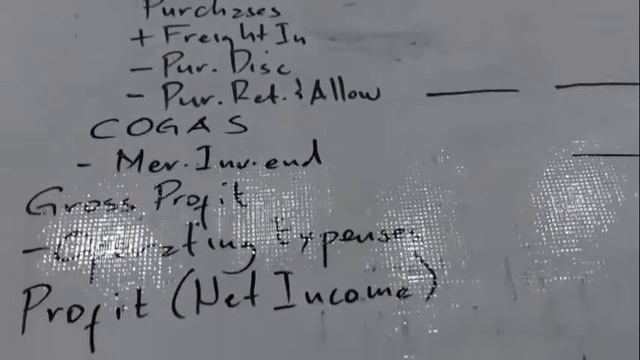 Purchases
+ Freight In
- Pur. Disc
- Pur. Ret. & Allow
COGAS
- Mer. Inv. end
Gross Profit
- Operating Expenses
Profit (Net Income)